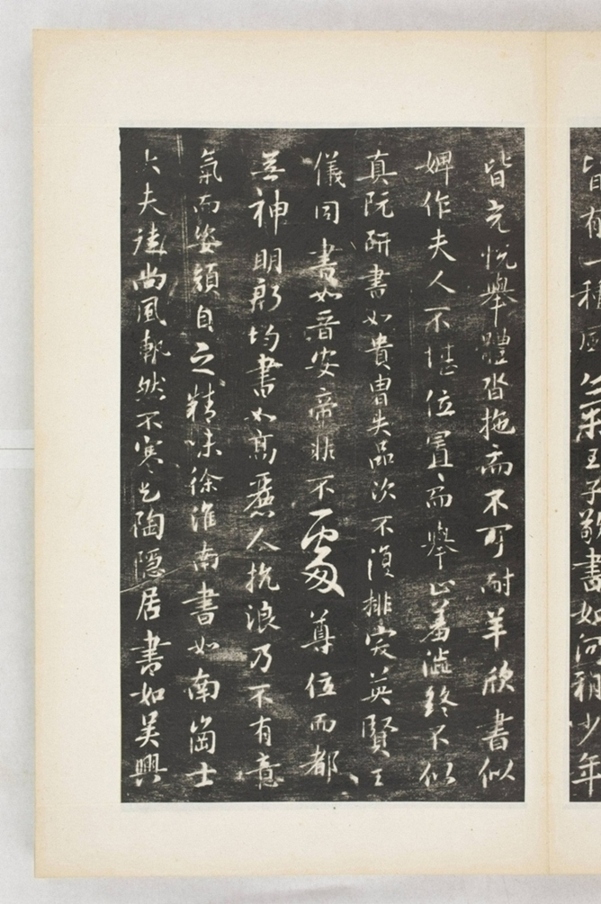 皆有一種風氣王子敬書如河朔少年
皆充悅舉體沓拖而不可耐羊欣書似
婢作夫人不堪位置而舉止羞澁終不似
真阮研書如貴胄失品次不復排突英賢王
儀同書如晉安帝非不處尊位而都
無神明
書如高麗人抗浪乃不有意
氣而姿頗自之精味徐淮南書如南崗士
大夫徒尚風軌然不寒乞陶隱居書如吳興